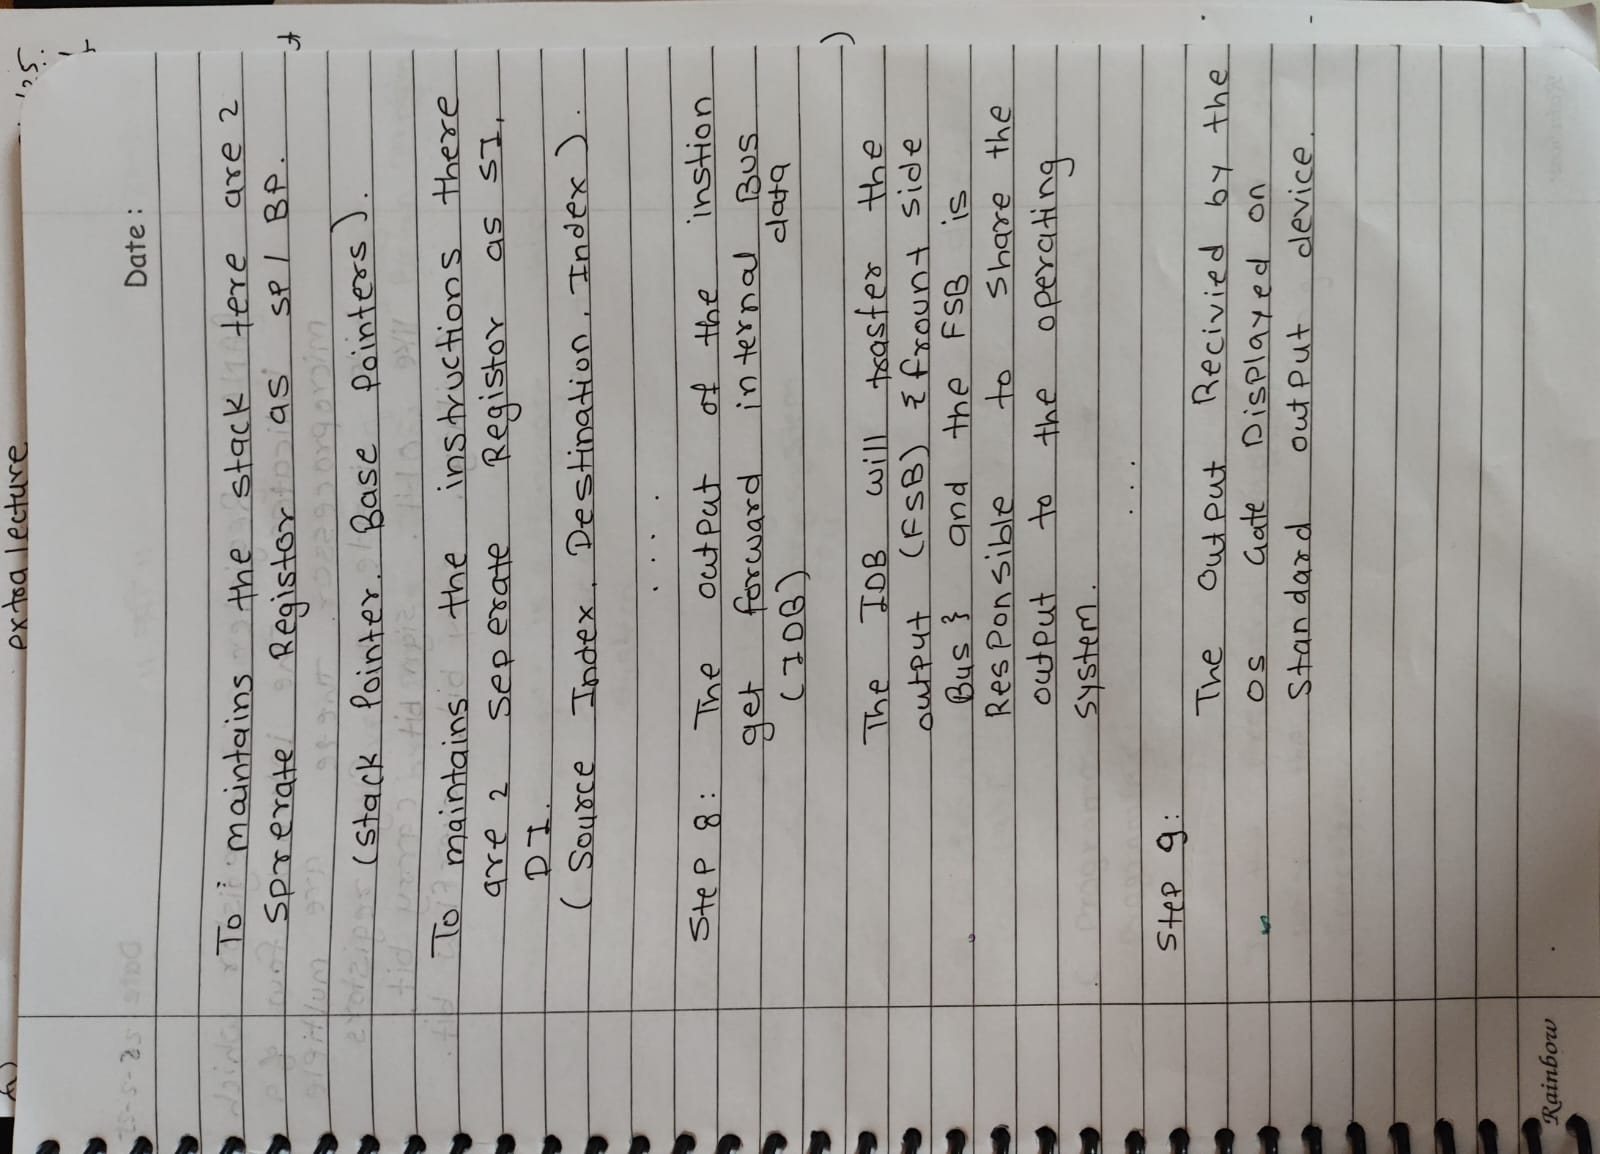 extra lecture
Date:
To maintains the stack tere are 2
Sprerate Registor as SP / BP.
(Stack Pointer. Base Pointers).
To maintains the instructions there
are 2 Seperate Registor as SI,
DI.
(Source Index. Destination. Index).
....
Step 8: The output of the instion
get forward internal Bus
(IDB) data
The IDB will trasfer the
output (FSB) {frount side
Bus } and the FSB is
Responsible to share the
output to the operating
System.
...
Step 9:
The output Recivied by the
OS Gate Displayed on
Standard output device.
Rainbow